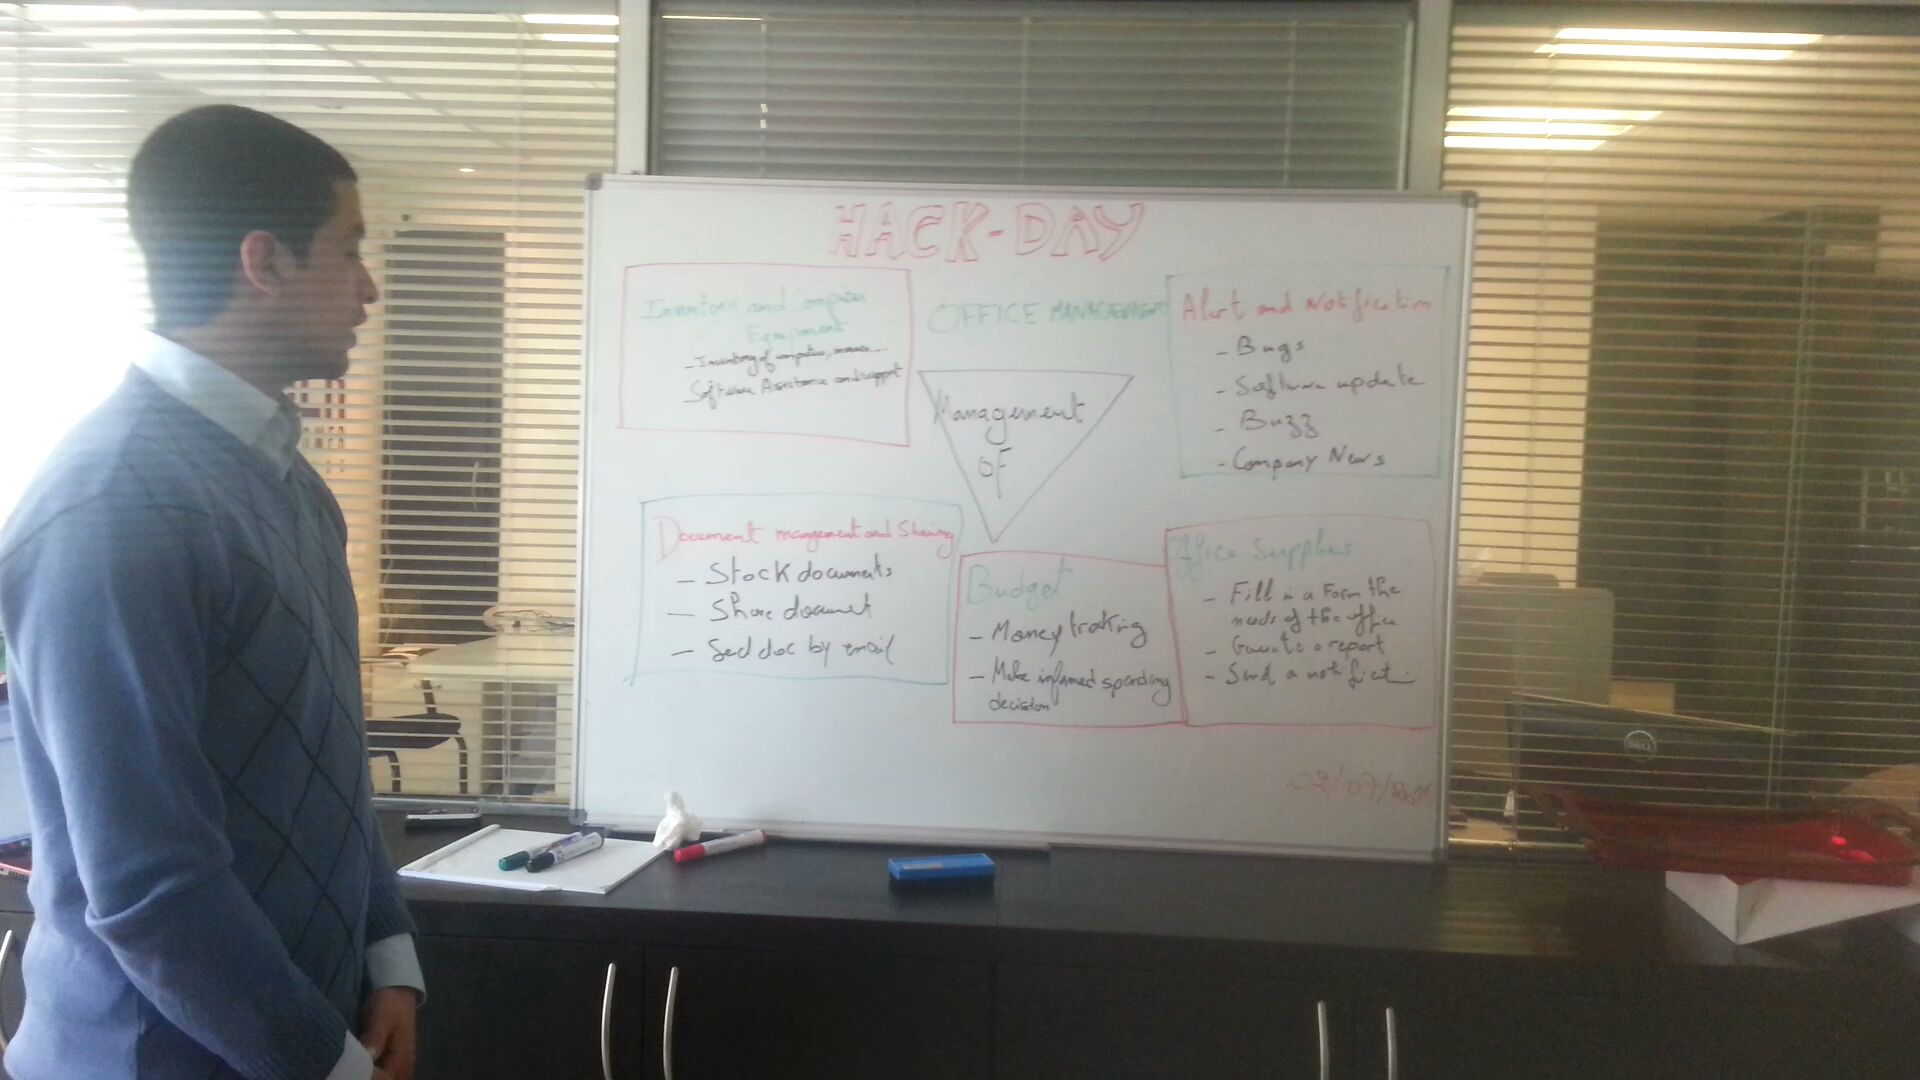 HACK-DAY
OFFICE MANAGEMENT
Management
OF
Inventory and Computer
Equipment
- Inventory of computers,
- Software Assistance and support
Alert and Notification
- Bugs
- Software update
- Buzz
- Company News
Document management and Sharing
- Stock documents
- Share document
- Send doc by email
Budget
- Money traking
- Make informed spending
decision
Office Supplies
- Fill in a Form the
needs of the office
- Generate a report
- Send a notificati
DELL